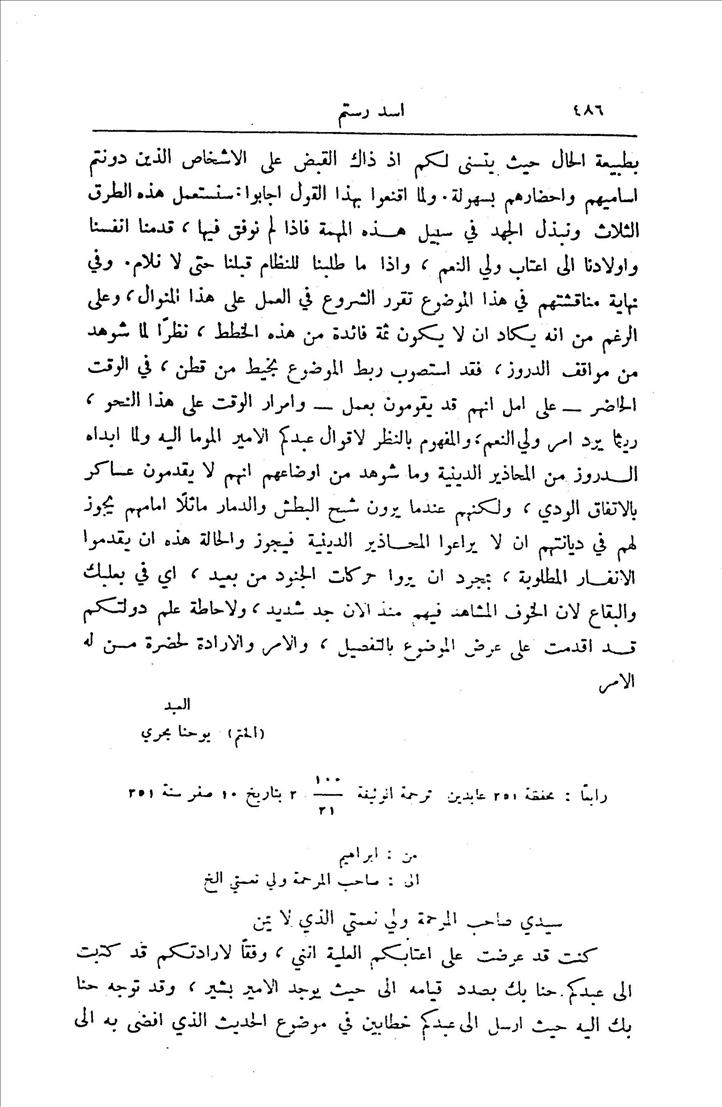 ٤٨٦
اسد رستم
بطبيعة الحال حيث يتسنى لكم اذ ذاك القبض على الاشخاص الذين دونتم
اساميهم واحضارهم بسهولة. ولما اقنعوا بهذا القول اجابوا: سنستعمل هذه الطرق
الثلاث ونبذل الجهد في سبيل هذه المهمة فاذا لم نوفق فيها، قدمنا انفسنا
واولادنا الى اعتاب ولي النعم، واذا ما طلبنا للنظام قبلنا حتى لا نلام. وفي
نهاية مناقشتهم في هذا الموضوع تقرر الشروع في العمل على هذا المنوال، وعلى
الرغم من انه يكاد ان لا يكون ثمة فائدة من هذه الخطط، نظرًا لما شوهد
من مواقف الدروز، فقد استصوب ربط الموضوع بخيط من قطن، في الوقت
الحاضر — على امل انهم قد يقومون بعمل — وامرار الوقت على هذا النحو،
ريثما يرد امر ولي النعم، والمفهوم بالنظر لاقوال عبدكم الامير الموما اليه ولما ابداه
الدروز من المحاذير الدينية وما شوهد من اوضاعهم انهم لا يقدمون عساكر
بالاتفاق الودي، ولكنهم عندما يرون شبح البطش والدمار ماثلًا امامهم يجوز
لهم في ديانتهم ان لا يراعوا المحاذير الدينية فيجوز والحالة هذه ان يقدموا
الانفار المطلوبة، بمجرد ان يروا حركات الجنود من بعيد، اي في بعلبك
والبقاع لان الخوف المشاهد فيهم منذ الان جد شديد، ولاحاطة علم دولتكم
قد اقدمت على عرض الموضوع بالتفصيل، والامر والارادة لحضرة من له
الامر
العبد
(الختم) يوحنا بحري
رابعًا: محفظة ٢٥١ عابدين ترجمة الوثيقة ١٠٠/٣١ ٢ بتاريخ ١٠ صفر سنة ٢٥١
من: ابراهيم
الى: صاحب المرحمة ولي نعمتي الخ
سيدي صاحب المرحمة ولي نعمتي الذي لا يمن
كنت قد عرضت على اعتابكم العلية انني، وفقًا لارادتكم قد كتبت
الى عبدكم حنا بك بصدد قيامه الى حيث يوجد الامير بشير، وقد توجه حنا
بك اليه حيث ارسل الى عبدكم خطابين في موضوع الحديث الذي افضى به الى